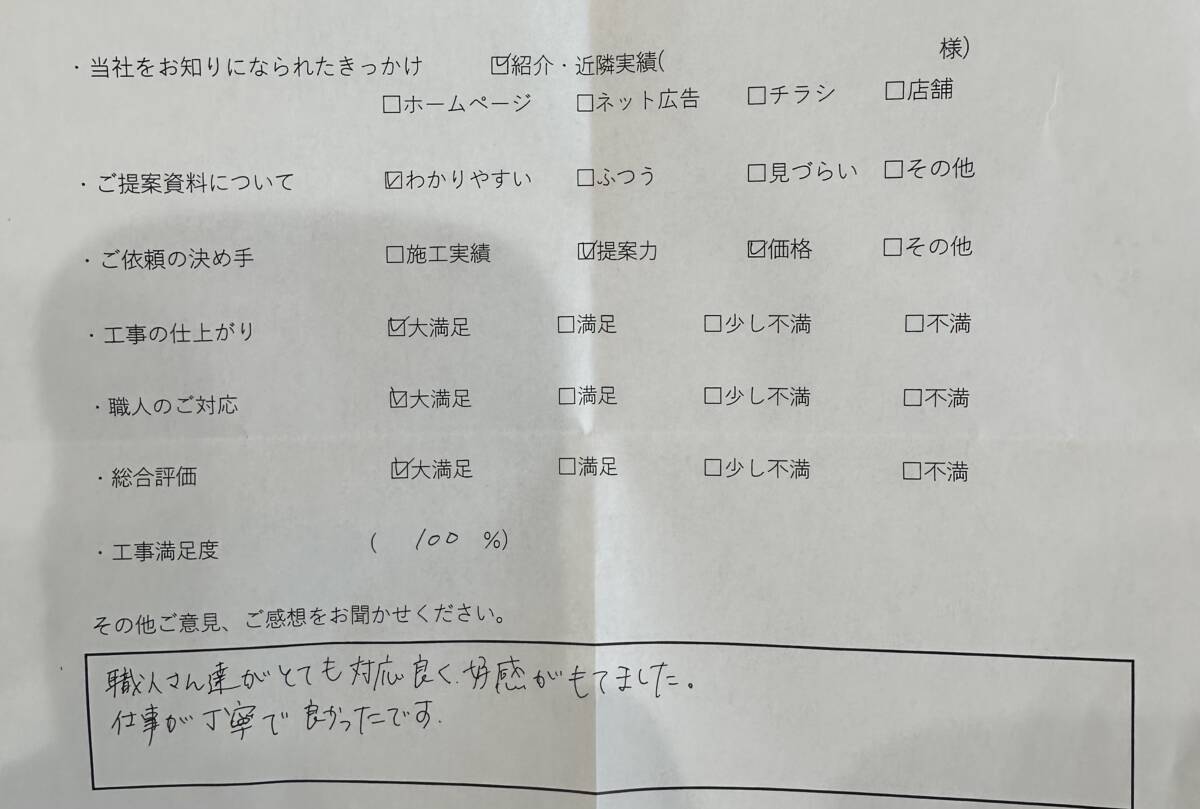 ・当社をお知りになられたきっかけ ☑紹介・近隣実績( 様)
☐ホームページ ☐ネット広告 ☐チラシ ☐店舗
・ご提案資料について ☑わかりやすい ☐ふつう ☐見づらい ☐その他
・ご依頼の決め手 ☐施工実績 ☑提案力 ☑価格 ☐その他
・工事の仕上がり ☑大満足 ☐満足 ☐少し不満 ☐不満
・職人のご対応 ☑大満足 ☐満足 ☐少し不満 ☐不満
・総合評価 ☑大満足 ☐満足 ☐少し不満 ☐不満
・工事満足度 ( 100 %)
その他ご意見、ご感想をお聞かせください。
職人さん達がとても対応良く、好感がもてました。
仕事が丁寧で良かったです。